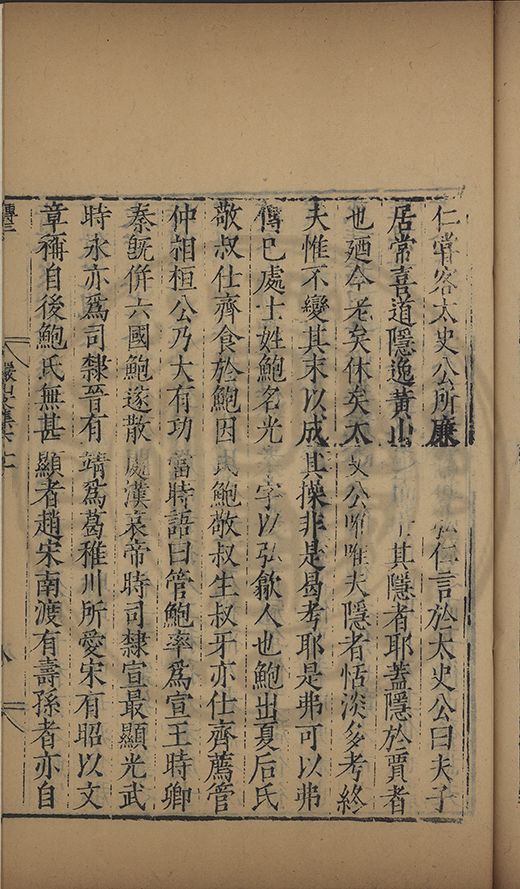 仁嘗客太史公所廉弘仁言於太史公曰夫子
居常喜道隱逸黃山其隱者耶蓋隱於賈者
也廼今老矣休矣太史公唯唯夫隱者恬淡多考終
夫惟不變其末以成其操非是曷考耶是弗可以弗
傳已處士姓鮑名光字以弘歙人也鮑出夏后氏
敬叔仕齊食於鮑因氏鮑敬叔生叔牙亦仕齊薦管
仲相桓公乃大有功當時語曰管鮑率爲宣王時卿
秦旣併六國鮑遂散處漢哀帝時司隸宣最顯光武
時永亦爲司隸晉有靖爲葛稚川所愛宋有昭以文
章稱自後鮑氏無甚顯者趙宋南渡有壽孫者亦自